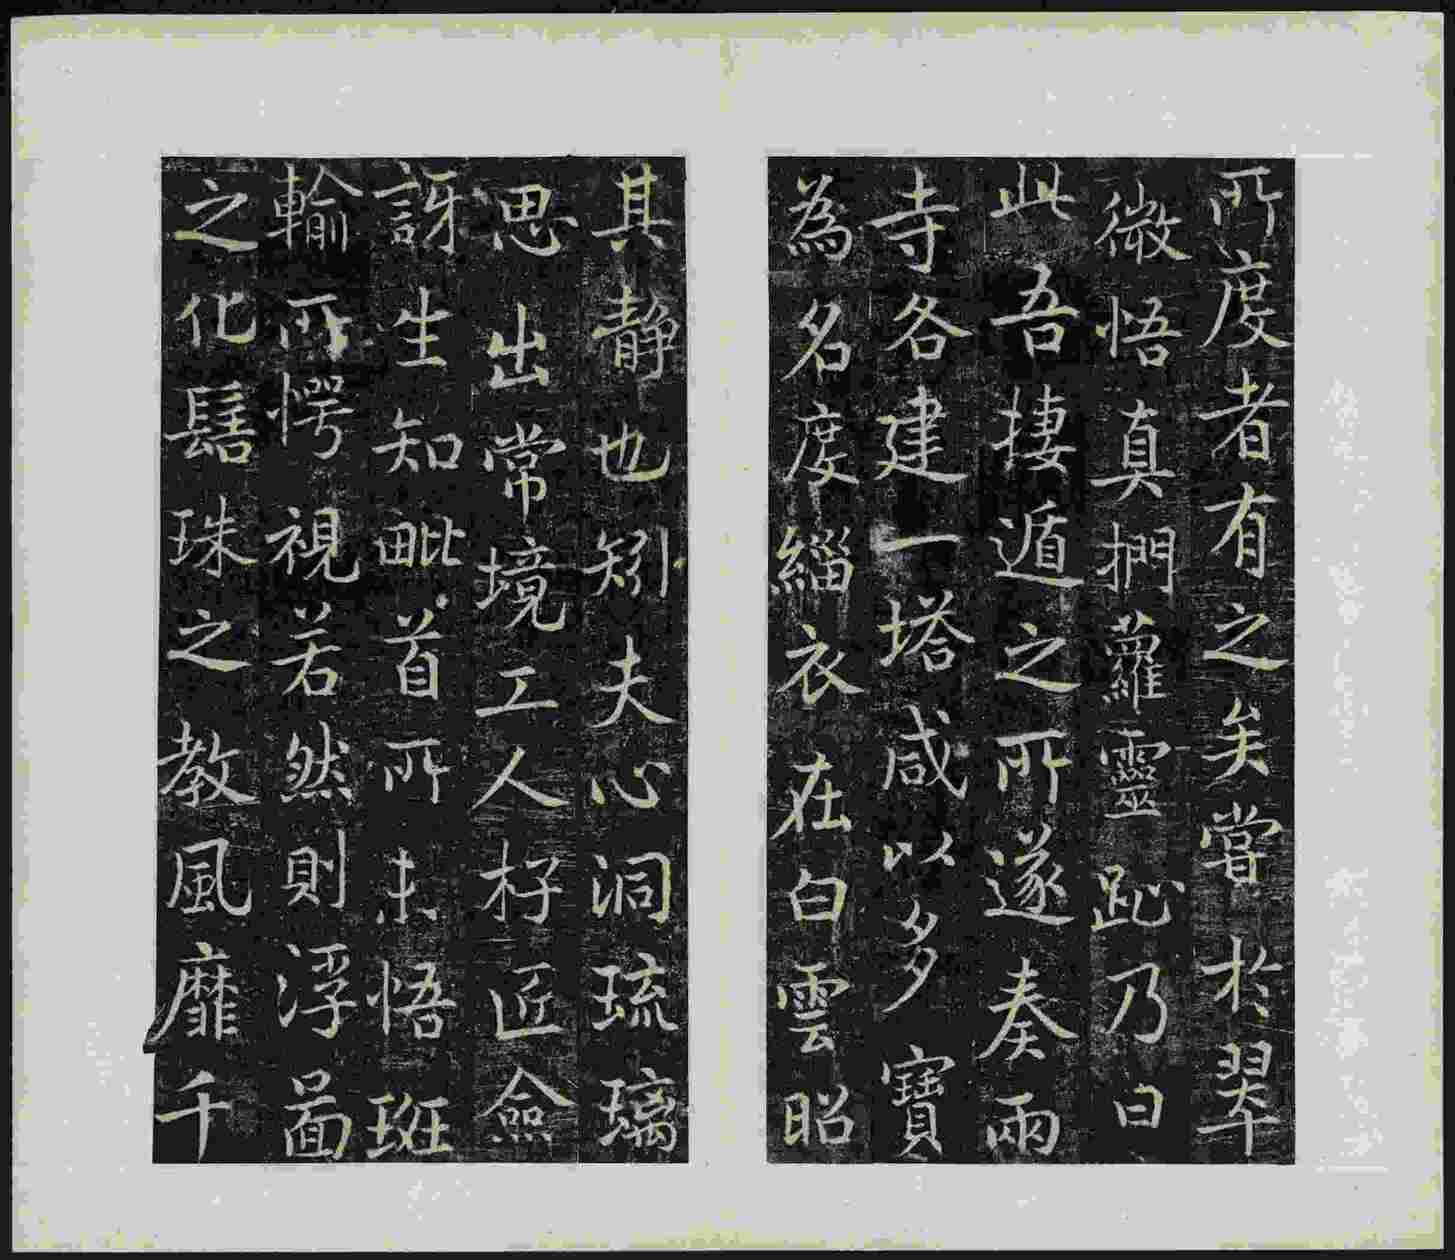 所度者有之矣嘗於翠
微悟真捫蘿靈趾乃曰
此吾捿遁之所遂奏兩
寺各建一塔咸以多寶
為名度緇衣在白雲昭
其靜也矧夫心洞琉璃
思出常境工人杍匠僉
訝生知毗首所未悟班
輸所愕視若然則浮圖
之化髻珠之教風靡千